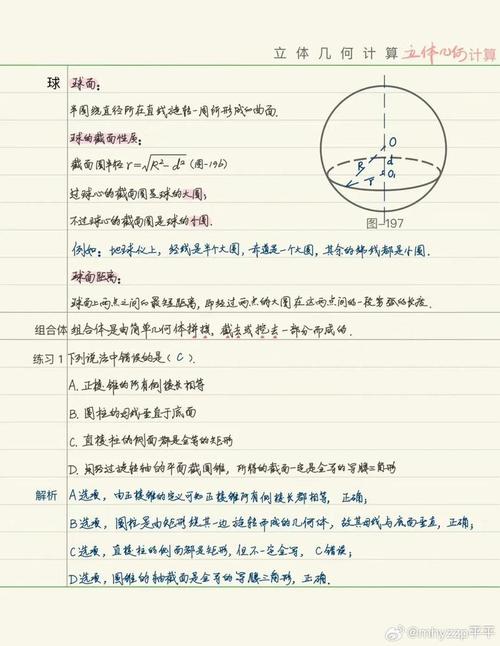 立体几何计算 立体几何计算
球 球面:
半圆绕直径所在直线旋转一周所形成的曲面.
球的截面性质:
截面圆半径 r=√R²-d² (图-196)
过球心的截面圆是球的大圆;
不过球心的截面圆是球的小圆.
例如: 地球仪上, 经线是半个大圆, 赤道是一个大圆, 其余的纬线都是小圆.
球面距离:
球面上两点之间的最短距离, 即经过两点的大圆在这两点间的一段劣弧的长度.
O
R
d
O₁
r
图-197
组合体 组合体是由简单几何体拼接, 截去或挖去一部分而成的.
练习1 下列说法中错误的是( C ).
A. 正棱锥的所有侧棱长相等
B. 圆柱的母线垂直于底面
C. 直棱柱的侧面都是全等的矩形
D. 用经过旋转轴的平面截圆锥, 所得的截面一定是全等的等腰三角形
解析 A选项, 由正棱锥的定义可知正棱锥所有侧棱长都相等, 正确;
B选项, 圆柱是由矩形绕其一边旋转而成的几何体, 故其母线与底面垂直, 正确;
C选项, 直棱柱的侧面都是矩形, 但不一定全等, C错误;
D选项, 圆锥的轴截面是全等的等腰三角形, 正确.
@mhyzzp平平